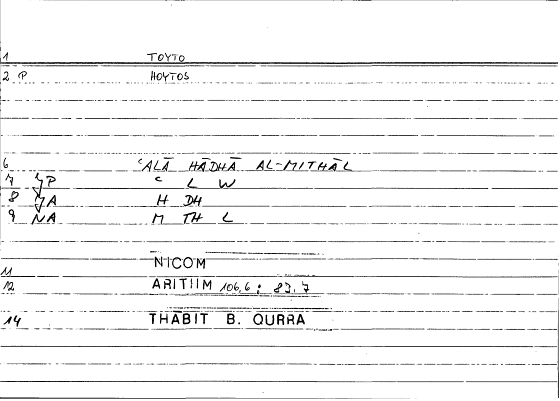 1 TOYTO
2 P HOYTOS
6 ʿALĀ HĀDHĀ AL-MITHĀL
7 P ʿ L W
8 A H DH
9 NA M TH L
11 NICOM
12 ARITIIM 106,6 : 83,7
14 THĀBIT B. QURRA